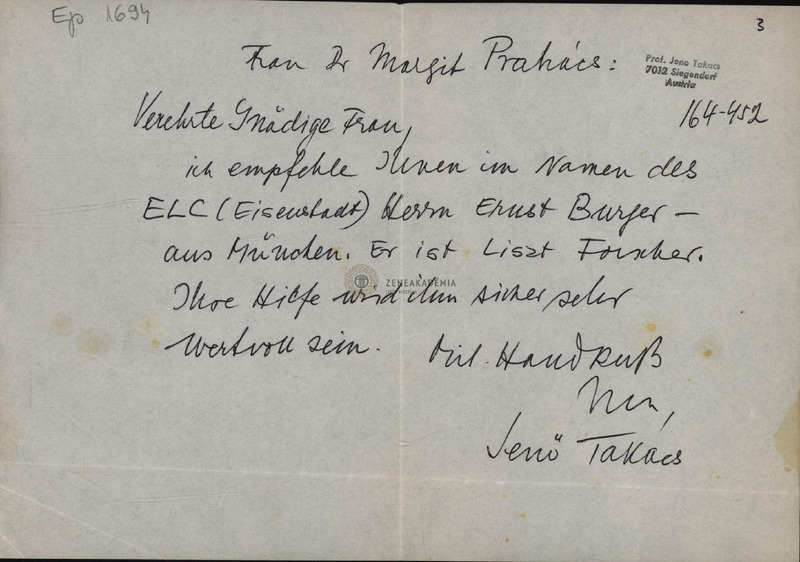 Ep 1694
3
Frau Dr Margit Prahács:
Prof. Jeno Takacs
7012 Siegendorf
Austria
164-452
Verehrte Gnädige Frau,
ich empfehle Ihnen im Namen des
ELC (Eisenstadt) Herrn Ernst Burger –
aus München. Er ist Liszt Forscher.
ZENEAKADÉMIA
Ihre Hilfe wird ihm sicher sehr
wertvoll sein. Handkuß
Ihr,
Jenö Takács